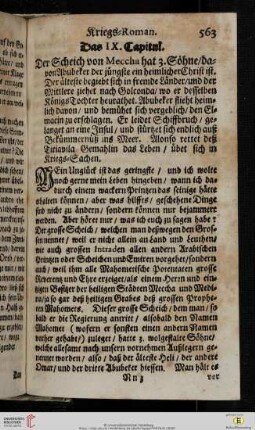 Kriegs-Roman. 563
Das IX. Capitul.
Der Scheich von Meccha hat 3. Söhne/da-
von Abubeker der jüngste ein heimlicher Christ ist.
Der älteste begiebt sich in fremde Länder/und der
Mittlere ziehet nach Golconda/wo er desselben
Königs Tochter heurathet. Abubeker fliehet heim-
lich davon/ und bemühet sich vergeblich/ den El-
marin zu erschlagen. Er leidet Schiffbruch / ge-
langet an eine Insul/ und stürtzet sich endlich auß
Bekümmernüß ins Meer. Alonso rettet deß
Gemahlin das Leben / übet sich in
Kriegs-Sachen.
Mein Unglück ist das geringste / und ich wolte
noch gerne mein Leben hingeben / wann ich das
durch einem wackern Printzen das seinige hätte
erhalten können / aber was hilffts/ geschehene Dinge
sind nicht zu ändern/ sondern können nur bejammert
werden. Aber höret nur / was ich euch zu sagen habe:
Der grosse Scheich / welchen man deßwegen den Gros-
sen nennet / weil er nicht allein an Land und Leuthen/
wie auch grossen Intraden allen andern Arabischen
Printzen oder Scheichen und Emiren vorgehet/sondern
auch/ weil ihm alle Mahometische Potentaten grosse
Reverentz und Ehre erzeigen/als einem Herrn und eini-
gen Besitzer der heiligen Städten Meccha und Medi-
na/ so gar deß heiligen Grabes deß grossen Prophe-
ten Mahomets. Dieser grosse Scheich / dem man / so
bald er die Regierung antritt / alsobald den Namen
Mahomet (wofern er sonsten einen andern Namen
vorher gehabt/) zuleget / hatte 3. wolgestalte Söhne/
welche allesamt nach unsern vornehmen Außlegern ge-
nennet worden / also / daß der älteste Heli / der andere
Omar/ und der dritte Abubeker hiessen. Man hält es
Nn 3 vor